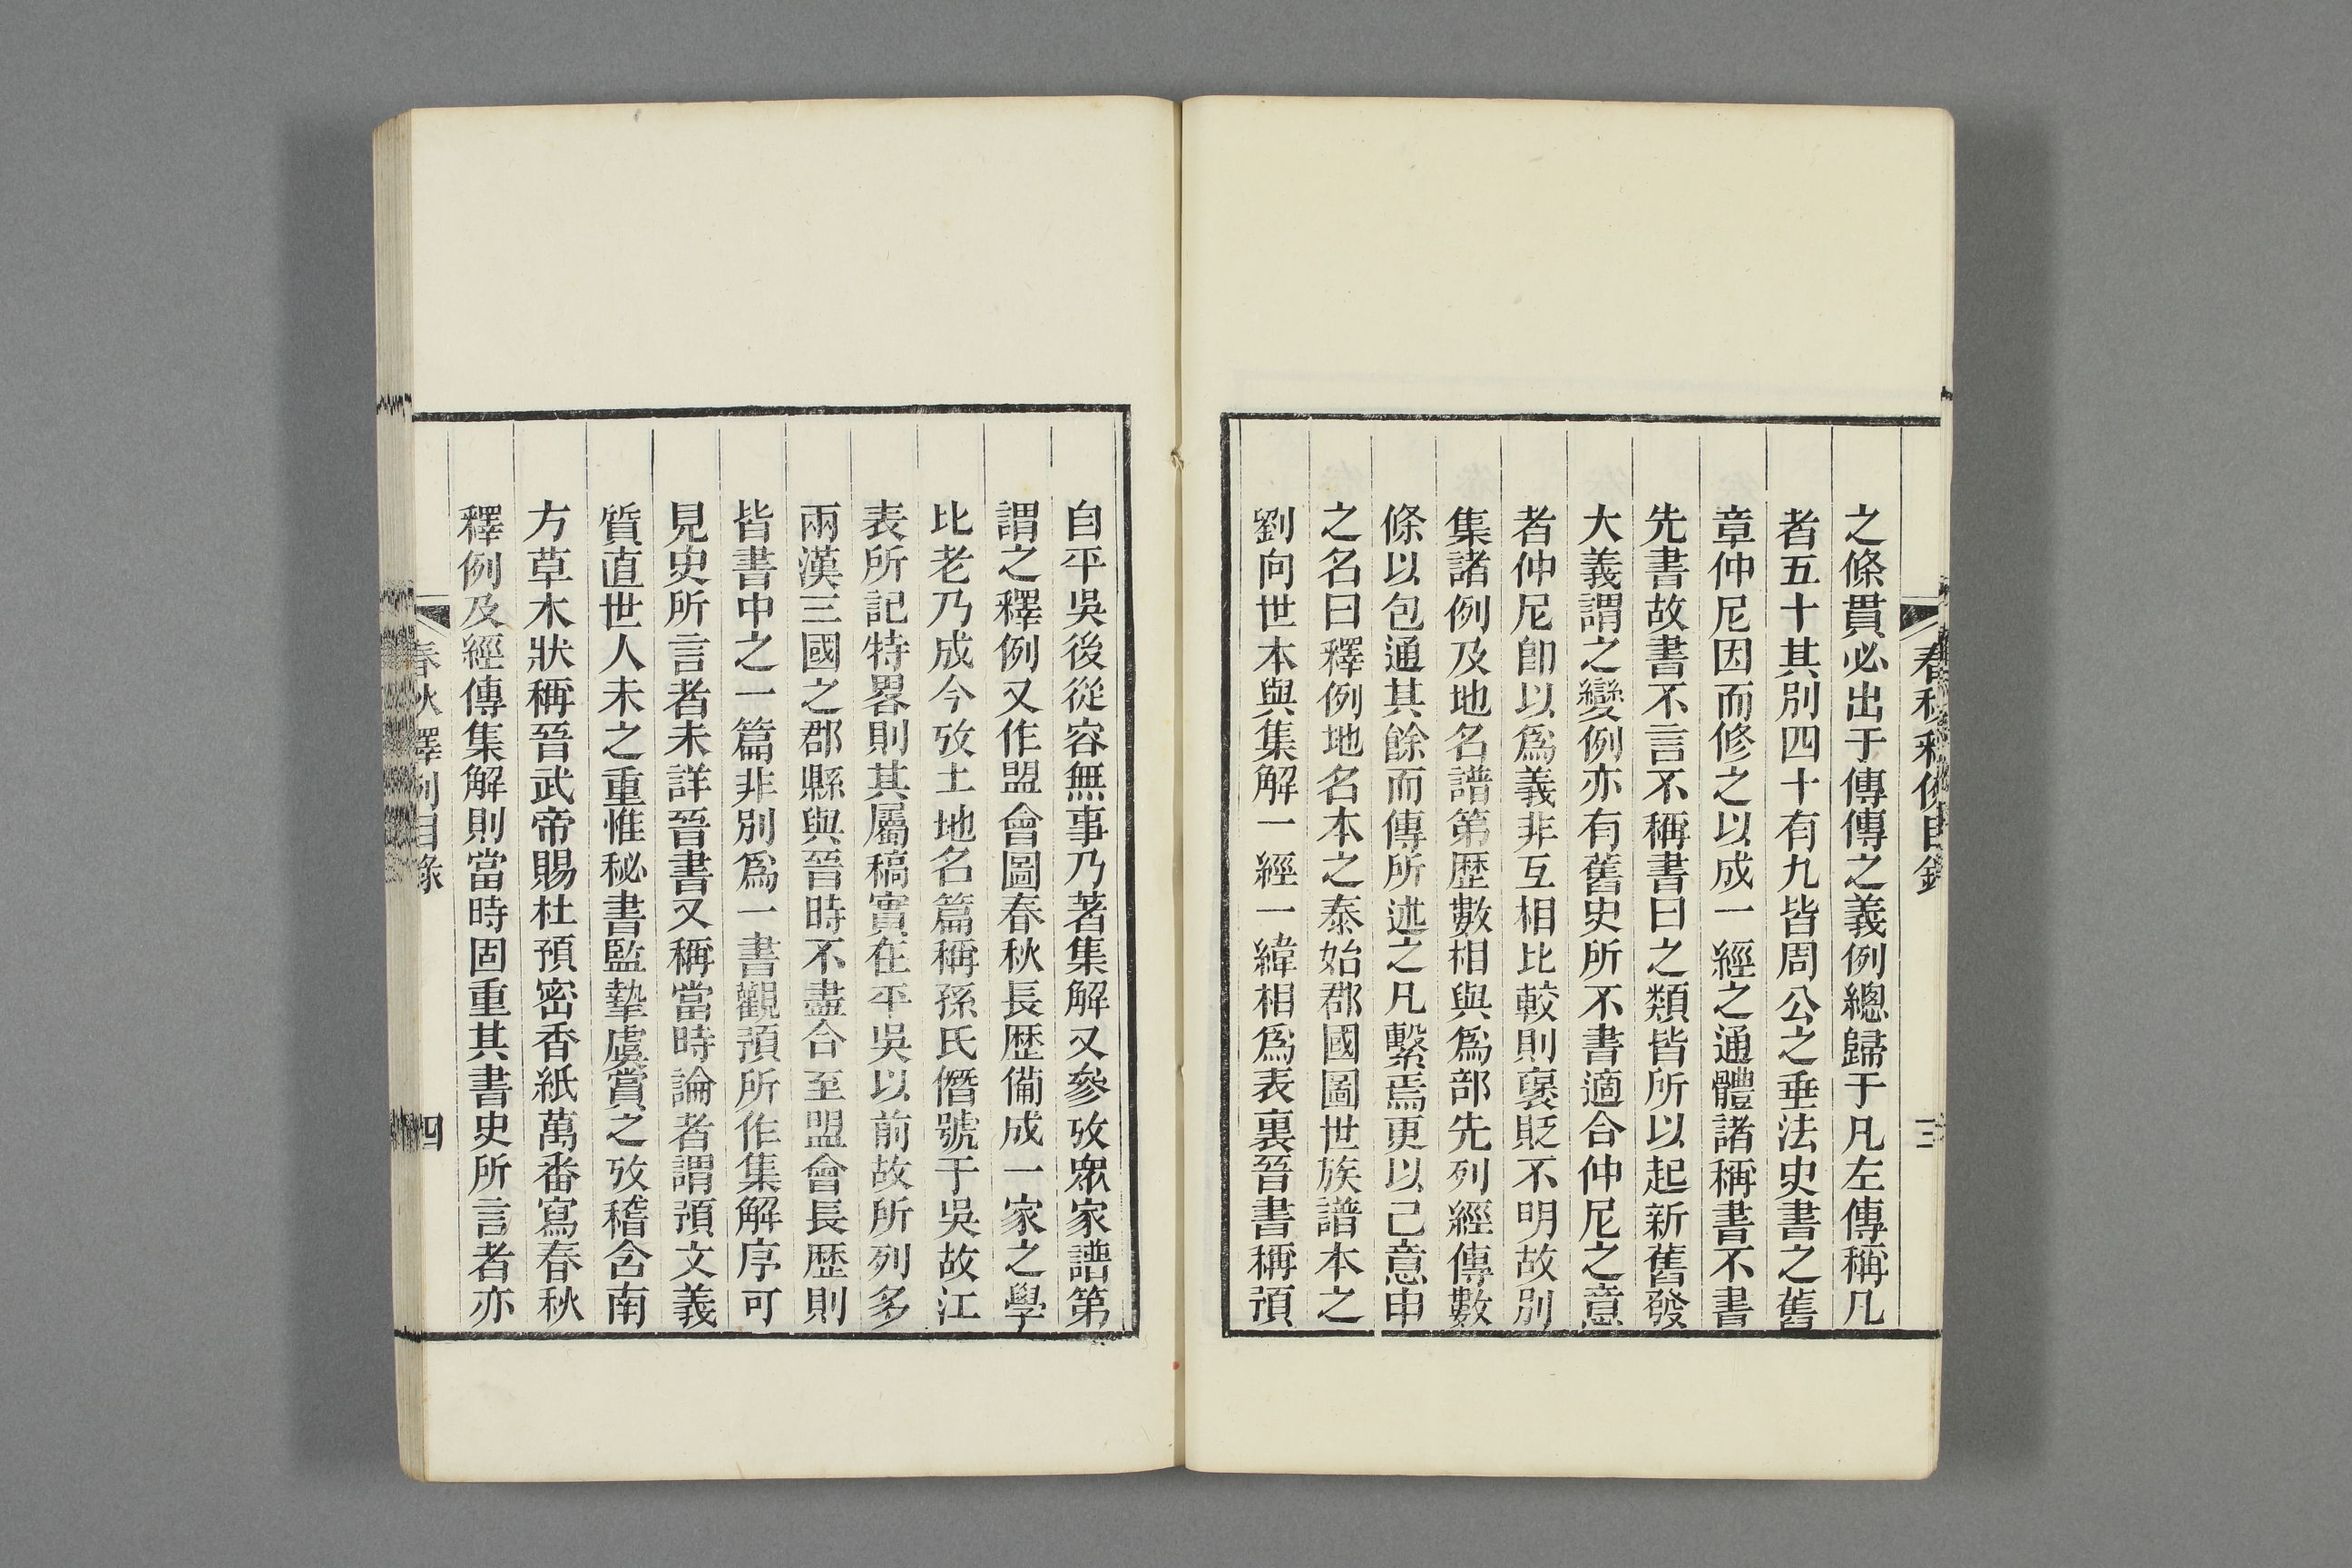 春秋釋例目錄
三
之條貫必出于傳傳之義例總歸于凡左傳稱凡
者五十其別四十有九皆周公之垂法史書之舊
章仲尼因而修之以成一經之通體諸稱書不書
先書故書不言不稱書曰之類皆所以起新舊發
大義謂之變例亦有舊史所不書適合仲尼之意
者仲尼卽以爲義非互相比較則襃貶不明故別
集諸例及地名譜第歷數相與爲部先列經傳數
條以包通其餘而傳所述之凡繫焉更以己意申
之名曰釋例地名本之泰始郡國圖世族譜本之
劉向世本與集解一經一緯相爲表裏晉書稱預
自平吳後從容無事乃著集解又參攷眾家譜第
謂之釋例又作盟會圖春秋長歷備成一家之學
比老乃成今攷土地名篇稱孫氏僭號于吳故江
表所記特畧則其屬稿實在平吳以前故所列多
兩漢三國之郡縣與晉時不盡合至盟會長歷則
皆書中之一篇非別爲一書觀預所作集解序可
見史所言者未詳晉書又稱當時論者謂預文義
質直世人未之重惟秘書監摯虞賞之攷稽含南
方草木狀稱晉武帝賜杜預密香紙萬番寫春秋
釋例及經傳集解則當時固重其書史所言者亦
春秋釋例目錄
四